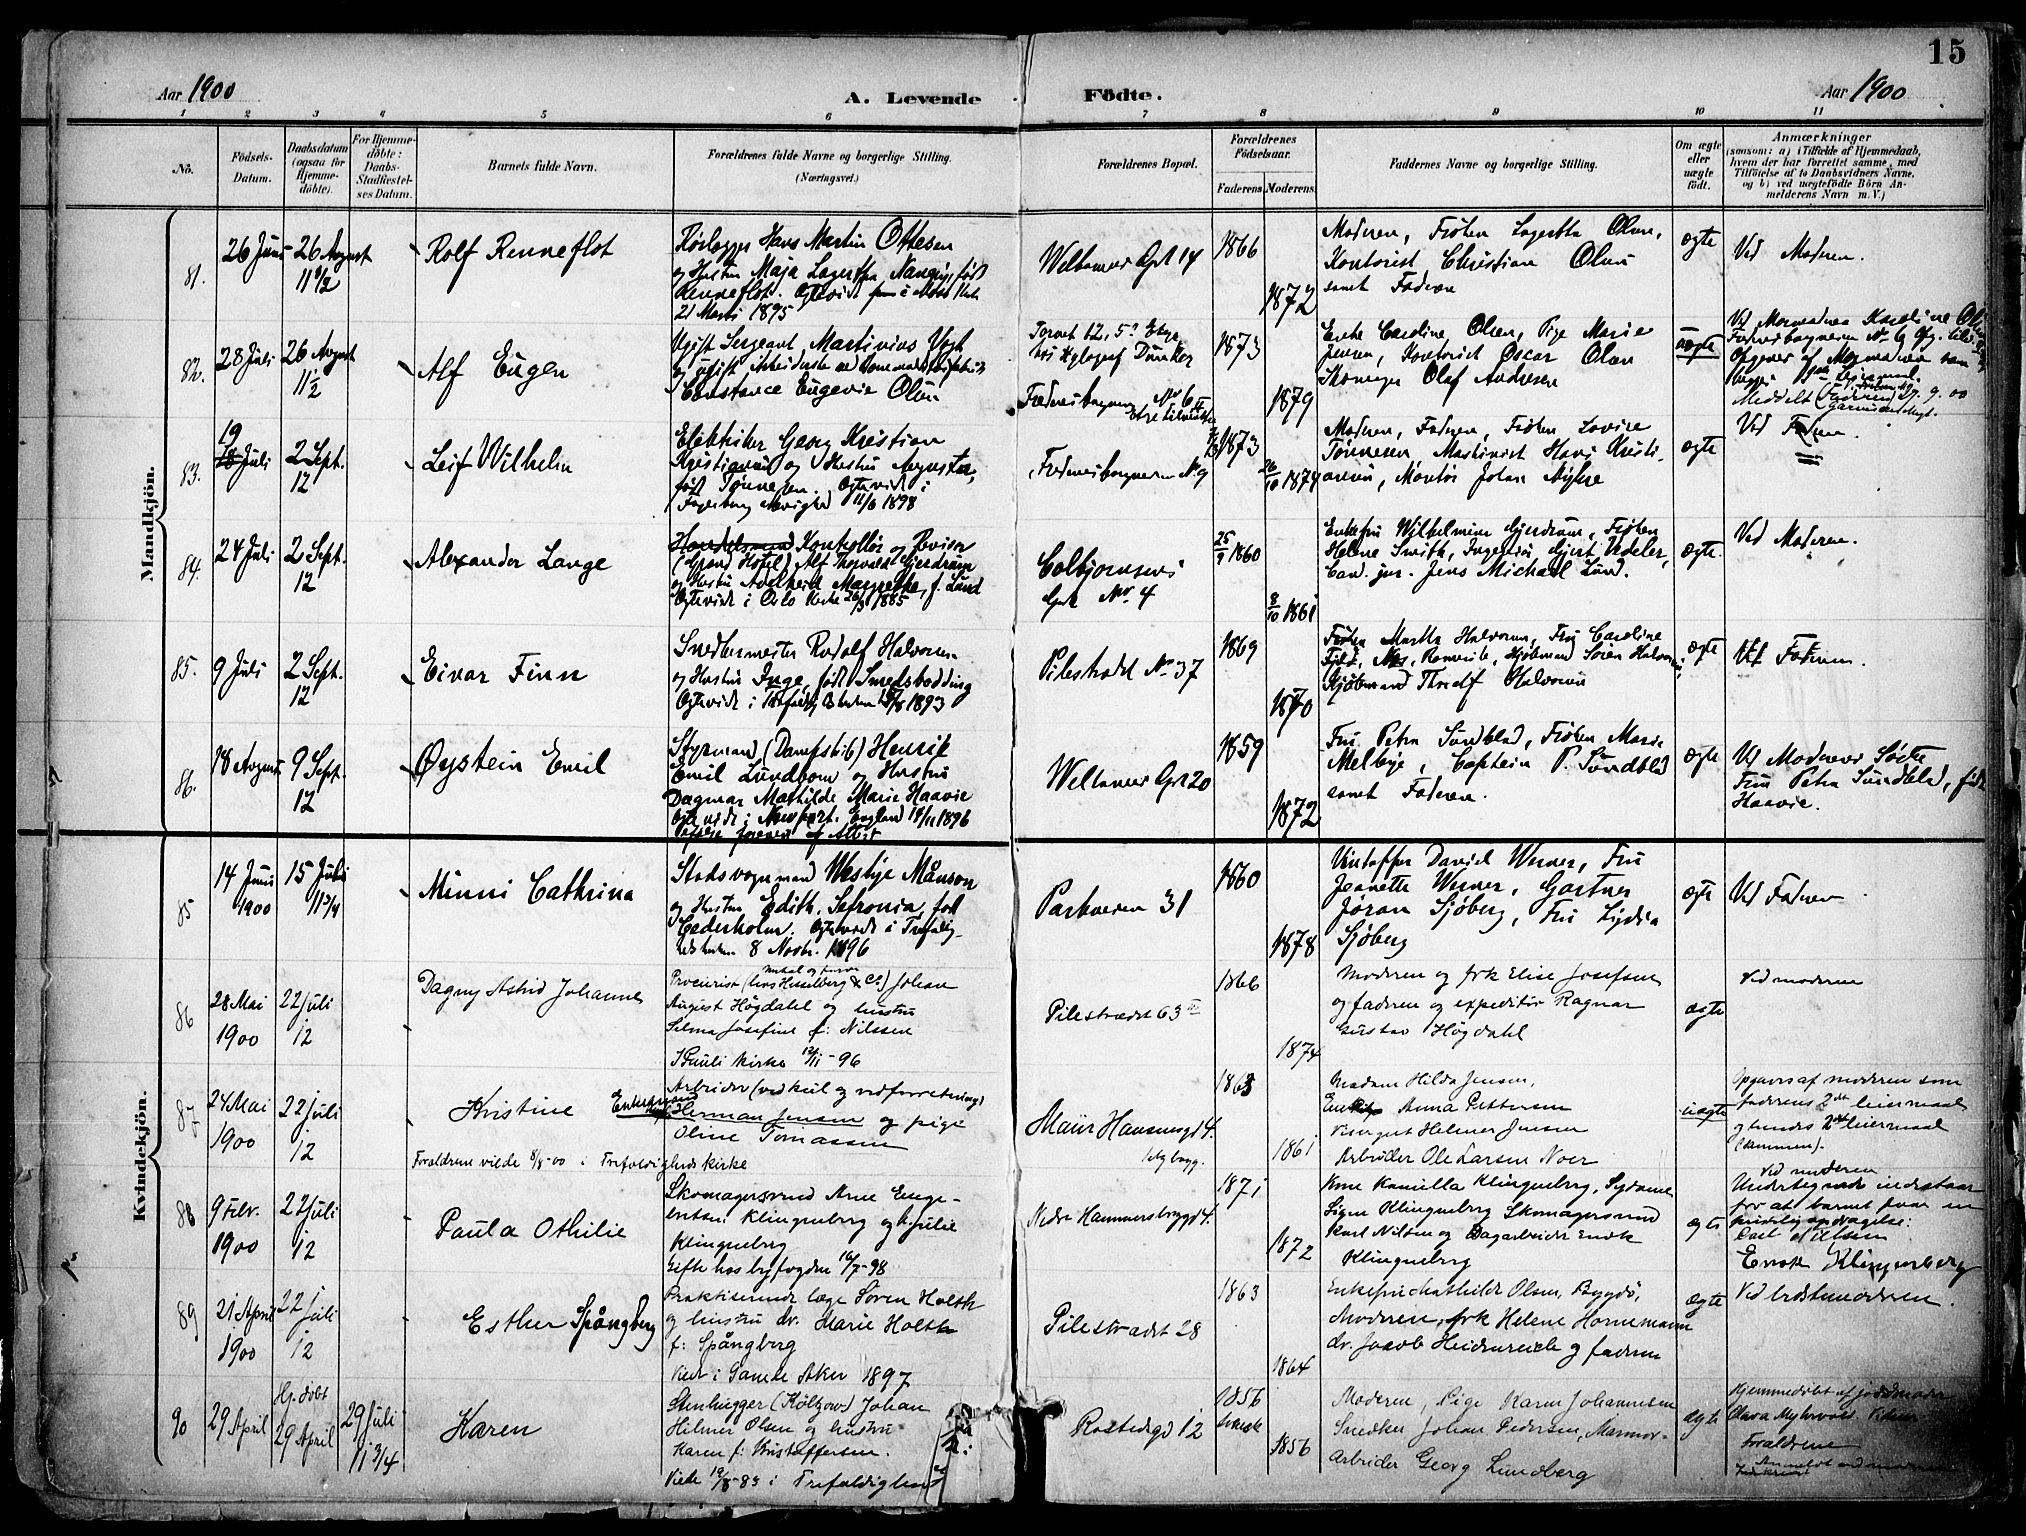 15
Aar 1900
A. Levende Födte.
Aar 1900
1 2 3 4 5 6 7 8 9 10 11
No.
Födsels-
Datum.
Daabsdatum
(ogsaa for
Hjemme-
döbte).
For Hjemme-
döbte:
Daabs-
Stadfæstel-
ses Datum.
Barnets fulde Navn.
Forældrenes fulde Navne og borgerlige Stilling.
(Næringsvei.)
Forældrenes Bopæl.
Forældrenes
Födselsaar.
Faderens. Moderens.
Faddernes Navne og borgerlige Stilling.
Om ægte
eller
uægte
födt.
Anmærkninger
(saasom: a) i Tilfælde af Hjemmedaab,
hvem der har forrettet samme, med
Tilföielse af to Daabsvidners Navne,
og b) ved uægtefödte Börn An-
melderens Navn m. V.)
Mandkjön.
81.
26 Juni
26 August
11 1/2
Rolf Renneflot
Hans Martin Ottesen
og Hustru Maja Lagertha NanGig, født
Renneflot. Egteviet i
21 Marts 1895
Welhavens Gt 14
1866
1872
Moderen, Frøken Lagertha Olsen,
Kontorist Christian Olsen
samt Faderen
ægte
Ved Moderen.
82.
28 Juli
26 August
11 1/2
Alf Eugen
Ugift Sergeant Martinius Vogt
og ugift Arbeiderske
Constance Eugenie Olsen
Torvet 12, 5te Etage
hos Xylograf Dunker
1873
1879
Enke Caroline Olsen, Pige Marie
Jensen, Kontorist Oscar Olsen
Skomager Olaf Andresen
uægte
Ved Mormoderen Karoline
Opgivet af Mormoderen som
Meddelt 27.9.00
83.
19
18 Juli
2 Sept.
12
Leif Wilhelm
Elektriker Georg Kristian
Kristiansen og Hustru Augusta,
født Tønnesen. Egteviet i
Fagerborg Menighed 11/6 1898
Fredensborgveien No 9
1873
26/10 1874
Moderen, Faderen, Frøken Lovise
Tønnesen, Maskinist Hans Kristi-
ansen, Montør Johan
ægte
Ved Faderen.
84.
24 Juli
2 Sept.
12
Alexander Lange
Handelsmand Kontrollør og Revisor
(Grand Hotel) Alf Thorvald Gjerdrum
og Hustru Adelheid Margrethe, f. Lund
Egteviet i Oslo Kirke 26/3 1885
Colbjørnsens
Gade No 4
25/9 1860
8/10 1861
Enkefru Wilhelmine Gjerdrum, Frøken
Helene Smith, Ingeniør Gjert Vedeler,
Cand. jur. Jens Michael Lund.
ægte.
Ved Moderen.
85.
9 Juli
2 Sept.
12
Einar Finn
Snedkermester Rudolf Halvorsen
og Hustru Inga, født Smedsbødding
Egteviet i Trefoldigh. Kirken 1893
Pilestrædet No 37
1869
1870
Frøken Martha Halvorsen, Fru Caroline
Kjøbmand Søren Halvorsen,
Kjøbmand Thoralf Halvorsen
ægte
Ved Faderen.
86.
18 August
9 Sept.
12
Øystein Emil
Styrmand (Dampskib) Henrik
Emil Lundbom og Hustru
Dagmar Mathilde Marie Haavie
Egteviet i Newport, England 14/11 1896
ifølge forevist af Attest
Welhavens Gt 20
1859
1872
Fru Petra Sundblad, Frøken Marie
Melbye, Captein P. Sundblad
samt Faderen.
ægte
Ved Moderens Søster
Fru Petra Sundblad, født
Haavie.
Kvindekjön.
85
14 Juni
1900
15 Juli
11 3/4
Minni Cathrina
Stadsvognmand Westye Månson
og Hustru Edith Sefronia, født
Cederholm. Egteviet i Trefoldig-
hedskirken 8 Novbr. 1896
Parkveien 31
1860
1878
David Werner, Fru
Jeanette Werner, Gartner
Jøran Sjøberg, Fru Lydia
Sjøberg
ægte
Ved Faderen
86
28 Mai
1900
22 Juli
12
Dagny Astrid Johanne
Procurist (hos Hesselberg & Co) Johan
August Høgdahl og hustru
Selma Josefine f: Nilssen
i Pauli kirke 12/11-96
Pilestrædet 63 IV
1866
1874
Moderen og frk Elise Josefsen
og faderen og expeditør Ragnar
Gustav Høgdahl
ægte
Ved moderen
87
24 Mai
1900
22 juli
12
Kristine
Arbeider (ved kul og vedforretning)
Enkemand Herman Jensen og pige
Oline Tomassen
Forældrene viede 8/8-00 i Trefoldigheds kirke
Maur Hansensgd 4.
1863
1861
Madam Hilda Jensen,
Anna Pettersen
Visergut Helmer Jensen
Arbeider Ole Larsen Noer
uægte
Opgives af moderen som
faderens 2det leiermaal
og hendes 2det leiermaal
(sammen).
Ved moderen
88
9 Febr.
1900
22 juli
12
Paula Othilie
Skomagersvend Arne Enge-
bretsen Klingenberg og h. Julie
Klingenberg
Gifte hos byfogden 16/7-98
Nedre Hammersborggd 4.
1871
1872
Kone Kamilla Klingenberg, Sydame
Signe Klingenberg Skomagersvend
Karl Nilsen og Dagarbeider Enok
Klingenberg
ægte
Undertegnede indestaar
for at barnet faar en
kristelig opdragelse:
Carl Nilsen
Enok Klingenberg
89
21 April
1900
22 juli
12
Esther Spångberg
Praktiserende læge Søren Holth
og hustru dr. Marie Holth
f: Spångberg
Viet i Gamle Aker 1897
Pilestrædet 28
1863
1864
Enkefru Mathilde Olsen, Bygdø,
Moderen, frk Helene Hornemann
dr. Jacob Heidenreich og faderen
ægte
Ved bedstemoderen.
90
29 April
Hj.døbt
29 April
29 juli
11 3/4
Karen
Stenhugger (Køltzow) Johan
Hilmer Olsen og hustru
Karen f: Kristoffersen.
Viede 19/8-83 i Trefoldigheds
Rostedsgd 12
1856
svensk
1856
Moderen, Pige Karen Johannesen
Snedker Johan Pedersen, Marmor-
arbeider Georg Lundberg
ægte
Hjemmedøbt af jordmoder
Olava Myhrvold. Vidner
Forældrene
Anmeldt ved moderen